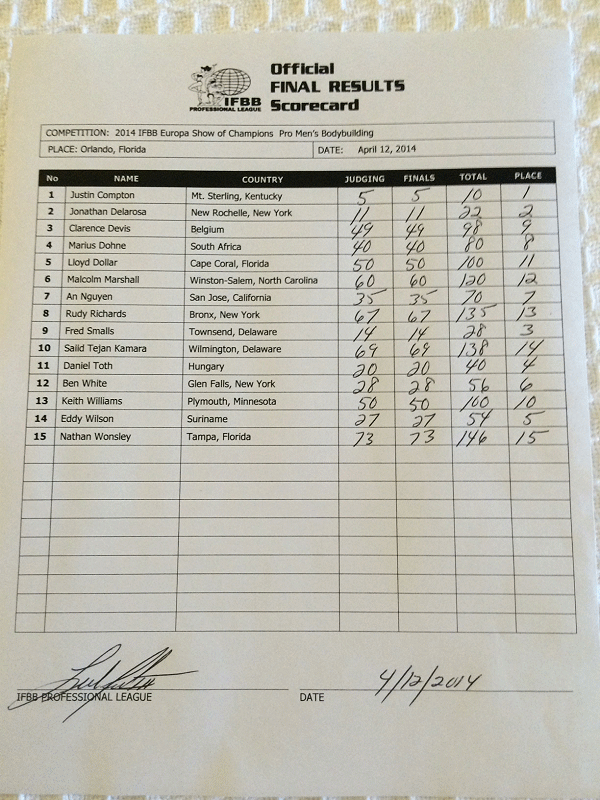 Official
FINAL RESULTS
Scorecard
IFBB
PROFESSIONAL LEAGUE
COMPETITION: 2014 IFBB Europa Show of Champions Pro Men's Bodybuilding
PLACE: Orlando, Florida DATE: April 12, 2014
No NAME COUNTRY JUDGING FINALS TOTAL PLACE
1 Justin Compton Mt. Sterling, Kentucky 5 5 10 1
2 Jonathan Delarosa New Rochelle, New York 11 11 22 2
3 Clarence Devis Belgium 49 49 98 9
4 Marius Dohne South Africa 40 40 80 8
5 Lloyd Dollar Cape Coral, Florida 50 50 100 11
6 Malcolm Marshall Winston-Salem, North Carolina 60 60 120 12
7 An Nguyen San Jose, California 35 35 70 7
8 Rudy Richards Bronx, New York 67 67 135 13
9 Fred Smalls Townsend, Delaware 14 14 28 3
10 Saiid Tejan Kamara Wilmington, Delaware 69 69 138 14
11 Daniel Toth Hungary 20 20 40 4
12 Ben White Glen Falls, New York 28 28 56 6
13 Keith Williams Plymouth, Minnesota 50 50 100 10
14 Eddy Wilson Suriname 27 27 54 5
15 Nathan Wonsley Tampa, Florida 73 73 146 15
4/12/2014
IFBB PROFESSIONAL LEAGUE DATE